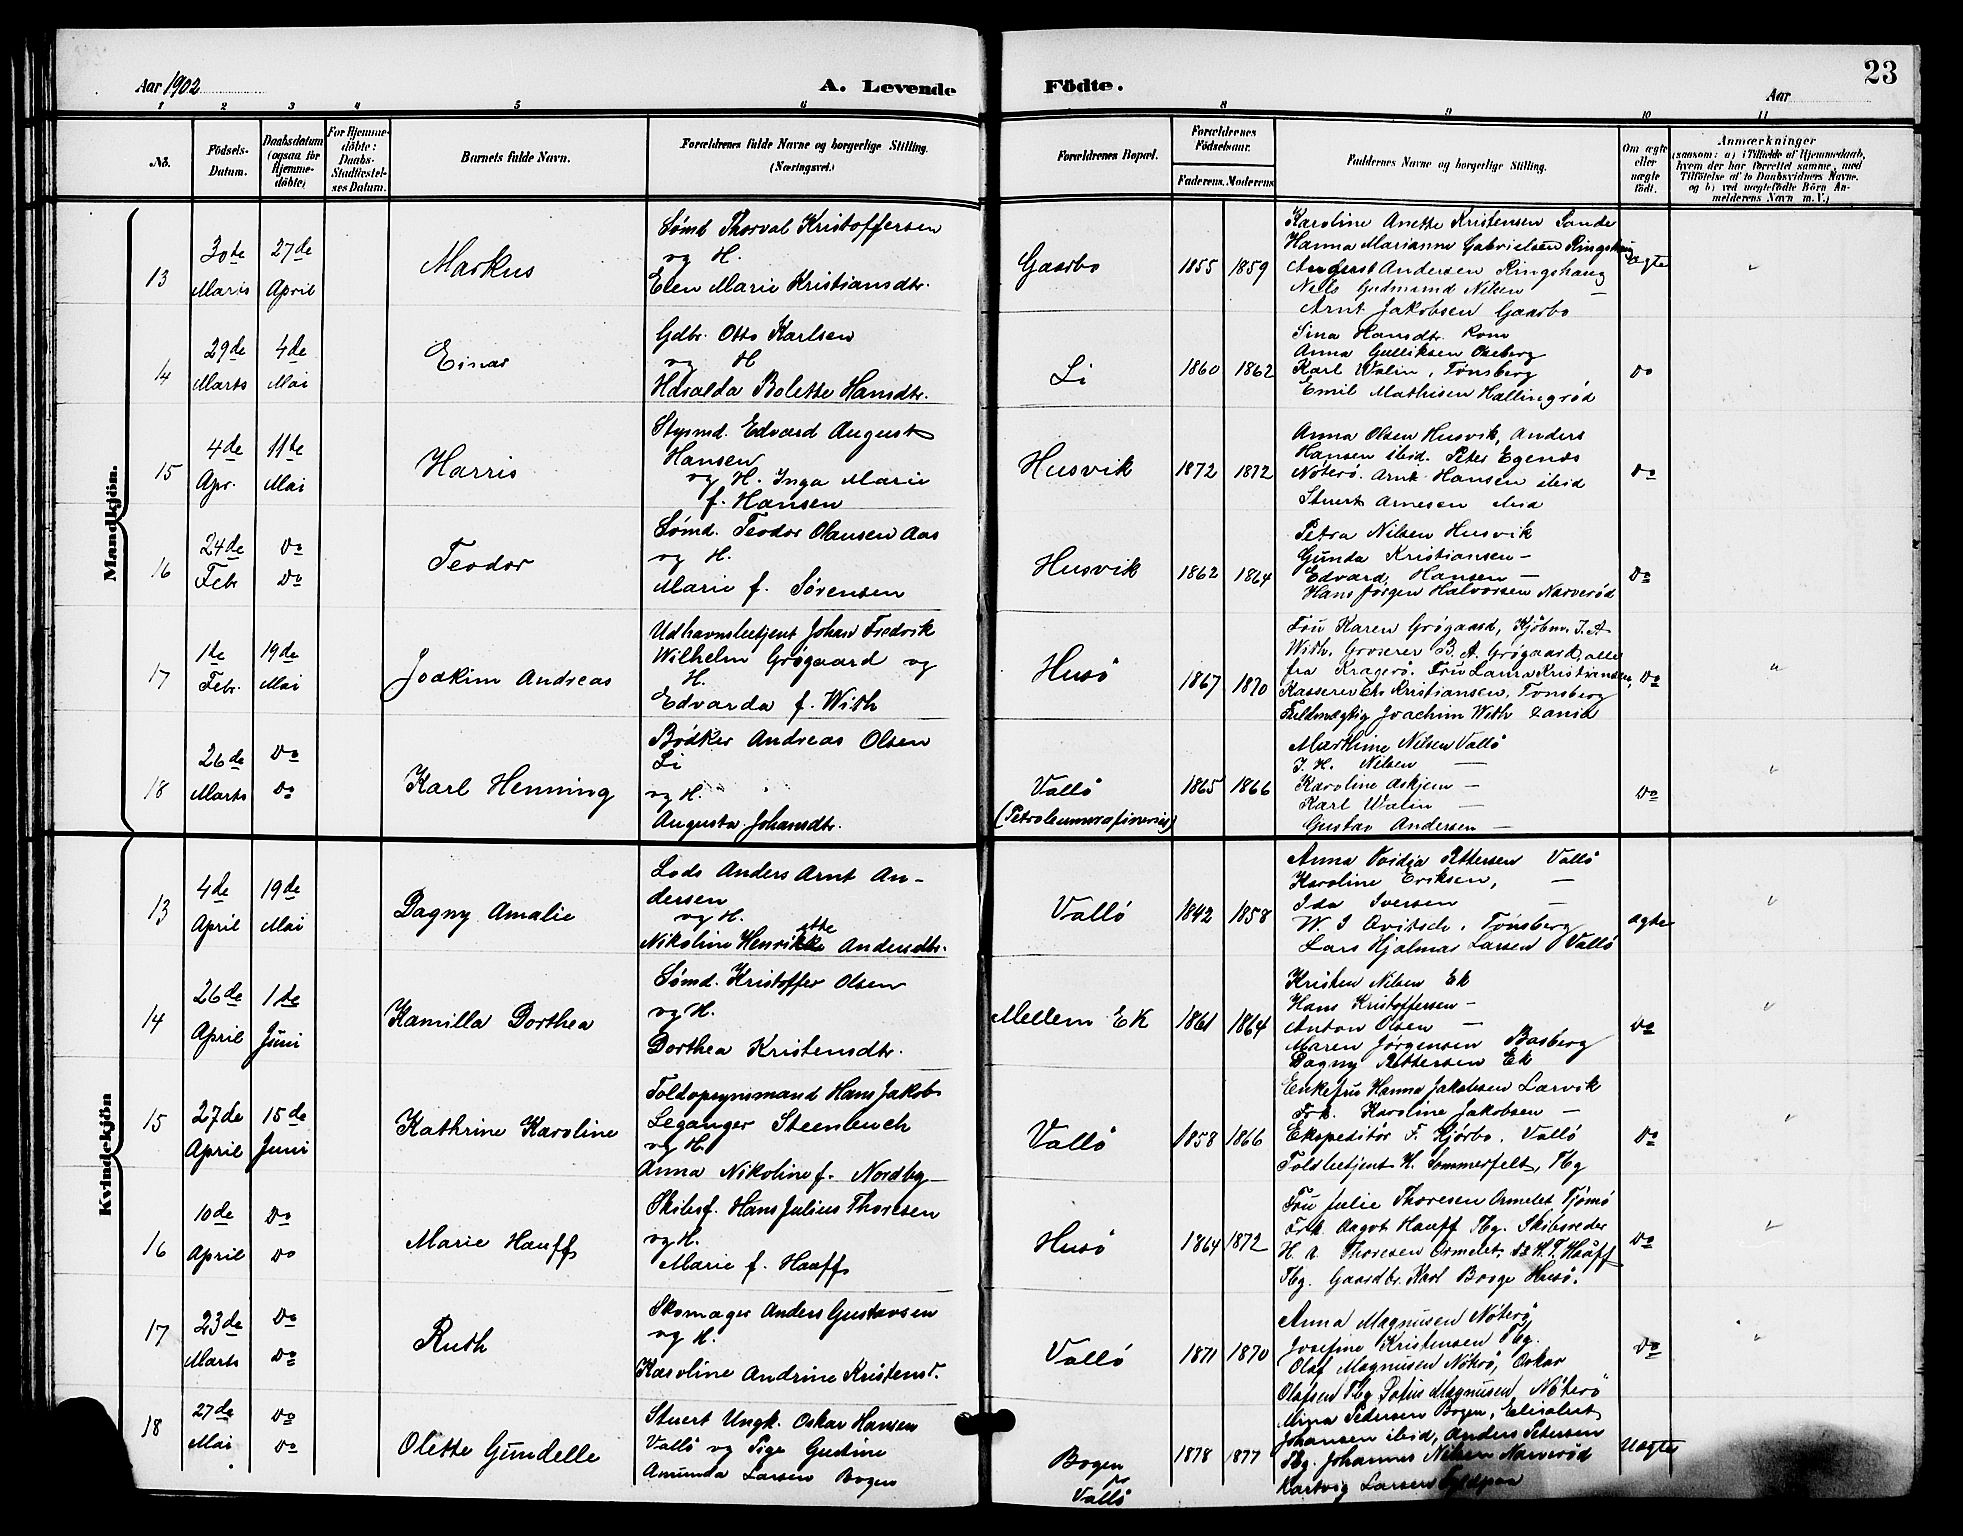 Aar 1902
A. Levende
Födte.
Aar
23
1 2 3 4 5 6 8 9 10 11
No.
Födsels-
Datum.
Daabsdatum
(ogsaa for
Hjemme-
döbte)
For Hjemme-
döbte:
Daabs-
Stadfæstel-
ses Datum.
Barnets fulde Navn.
Forældrenes fulde Navne og borgerlige Stilling.
(Næringsvei.)
Forældrenes Bopæl.
Forældrenes
Födselsaar.
Faderens. Moderens
Faddernes Navne og borgerlige Stilling.
Om ægte
eller
uægte
födt.
Anmærkninger
(saasom: a) i Tilfælde af Hjemmedaab,
hvem der har forrettet samme, med
Tilföielse af to Daabsvidners Navne.
og b) ved uægtefödte Börn An-
melderens Navn m. V.)
Mandkjön.
13
30te
Marts
27de
April
Markus
Sømd Thorval Kristoffersen
og H.
Elen Marie Kristiansdtr.
Gaarbo
1855 1859
Karoline Anette Kristensen Sande
Hanna Marianne Gabrielsen Ringshaug
Anderst Andersen Ringshaug
Nils Gudmund Nilsen —
Arnt Jakobsen Gaarbo
ægte
"
14
29de
Marts
4de
Mai
Einar
Gdbr. Otto Karlsen
og H
Haralda Bolette Hansdtr.
Li
1860 1862
Sina Hansdtr. Rom
Anna Gulliksen Oseberg
Karl Walin, Tønsberg
Emil Mathisen Hallingrød
Do
15
4de
Apr.
11te
Mai
Harris
Styrmd. Edvard August
Hansen
og H. Inga Marie
f. Hansen
Husvik
1872 1872
Anna Olsen Husvik, Anders
Hansen ibid. Peter Egenæs
Nøterø. Arnt Hansen ibid
Stuert Arnesen ibid
Do
16
24de
Febr
Do
Do
Teodor
Sømd. Teodor Olausen Aas
og H.
Marie f. Sørensen
Husvik
1862 1864
Petra Nilsen Husvik
Gunda Kristiansen —
Edvard, Hansen —
Hans Jørgen Halvorsen Narverød
Do
17
1ste
Febr.
19de
Mai
Joakim Andreas
Udhavnsbetjent Johan Fredrik
Wilhelm Grøgaard og
H.
Edvarda f. With
Husø
1867 1870
Fru Karen Grøgaard, Kjøbm. J. A
With, Groserer B. A. Grøgaard, alle
fra Kragerø. Fru Laura Kristiansen,
Kasserer Chr Kristiansen, Tønsberg
Fuldmægtig Joachim With
Do
"
18
26de
Marts
Do
Do
Karl Henning
Bødker Andreas Olsen
Li
og H.
Augusta Johansdtr.
Vallö
(Petroleumsrafineriet)
1865 1866
Marthine Nilsen Vallö
J. H. Nilsen —
Karoline Askjem —
Karl Walin —
Gustav Andersen —
Do
"
Kvindekjön
13
4de
April
19de
Mai
Dagny Amalie
Lods Anders Arnt An-
dersen
og H.
Nikoline Henrikke Andersdtr.
ette
Vallö
1842 1858
Anna Ovidia Pettersen Vallö
Karoline Eriksen, —
Ida Iversen —
W. I Ovitsch, Tønsberg
Lars Hjalmar Larsen Vallö
ægte
"
14
26de
April
1ste
Juni
Kamilla Dorthea
Sømd. Kristoffer Olsen
og H.
Dorthea Kristensdtr.
Mellem Ek
1861 1864
Kristen Nilsen Ek
Hans Kristoffersen —
Anton Olsen —
Maren Jørgensen Basberg
Dagny Pettersen Ek
Do
"
15
27de
April
15de
Juni
Kathrine Karoline
Toldopsynsmand Hans Jakob
Leganger Steenbuch
og H
Anna Nikoline f. Nordby
Vallö
1858 1866
Enkefru Hanna Jakobsen Larvik
Frk. Karoline Jakobsen —
Ekspeditör F. Kjørbo, Vallö
Toldbetjent H. Sommerfelt, Tbg
Do
"
16
10de
April
Do
Do
Marie Hauff
Skibsf. Hans Julius Thoresen
og H.
Marie f. Hauff
Husö
1864 1872
Fru Julie Thoresen Ormelet Tjömö
Frk Aagot Hauff Tbg. Skibsreder
H. A Thoresen Ormelet, H. T. Hauff
Tbg. Gaardbr. Karl Borge Husö.
Do
"
17
23de
Marts
Do
Do
Ruth
Skomager Anders Gustavsen
og H.
Karoline Andrine Kristensd.
Vallö
1871 1870
Anna Magnusen Nöterö
Josefine Kristensen Tbg.
Olaf Magnusen Nöterö, Oskar
Olafsen Tbg Magnusen, Nöterö
Do
"
18
27de
Mai
Do
Do
Olette Gundelle
Stuert Ungk. Oskar Hansen
Vallö og Pige Gustine
Amunda Larsen Bogen
Bogen
Vallö
1878 1877
Mina Pedersen Bogen, Elisabet
Johansen ibid, Anders Petersen
Tbg. Johannes Nilsen Narverød
Hartvig Larsen
Uægte